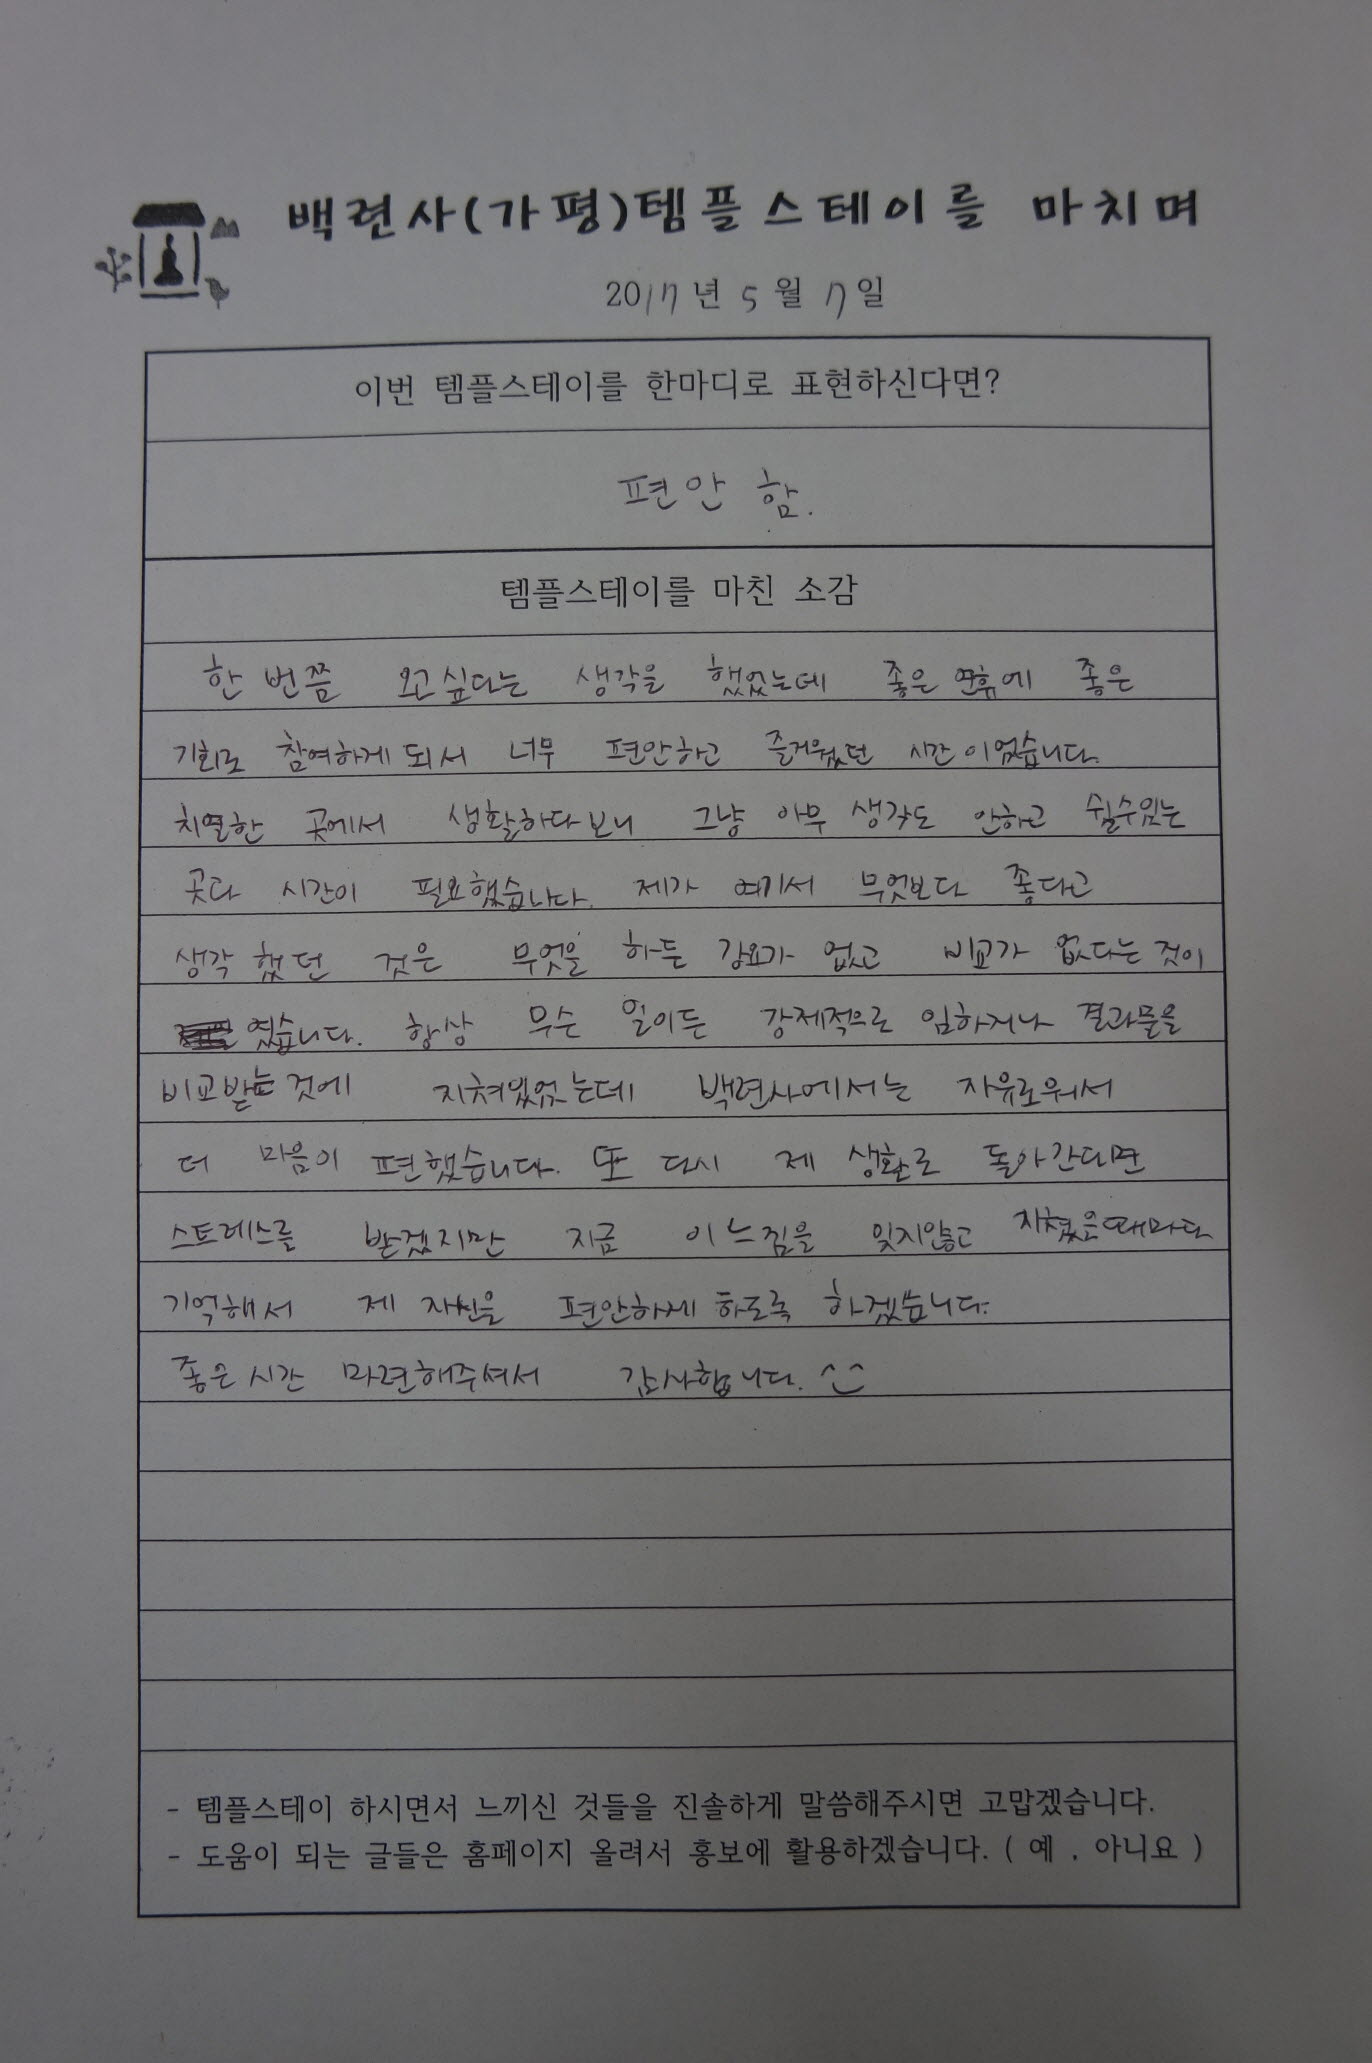 백련사(가평)템플스테이를 마치며
2017년 5월 7일
이번 템플스테이를 한마디로 표현하신다면?
편안 함.
템플스테이를 마친 소감
한 번쯤 오고싶다는 생각을 했었는데 좋은 연휴에 좋은
기회로 참여하게 되서 너무 편안하고 즐거웠던 시간이었습니다.
치열한 곳에서 생활하다보니 그냥 아무 생각도 안하고 쉴수있는
곳다 시간이 필요했습니다. 제가 여기서 무엇보다 좋다고
생각했던 것은 무엇을 하든 강요가 없고 비교가 없다는 것이
였습니다. 항상 무슨 일이든 강제적으로 임하거나 결과물을
비교받는 것에 지쳐있었는데 백련사에서는 자유로워서
더 마음이 편했습니다. 또 다시 제 생활로 돌아간다면
스트레스를 받겠지만 지금 이 느낌을 잊지않고 지쳤을때마다
기억해서 제 자신을 편안하게 하도록 하겠습니다.
좋은 시간 마련해주셔서 감사합니다. ^^
- 템플스테이 하시면서 느끼신 것들을 진솔하게 말씀해주시면 고맙겠습니다.
- 도움이 되는 글들은 홈페이지 올려서 홍보에 활용하겠습니다. ( 예 , 아니요 )